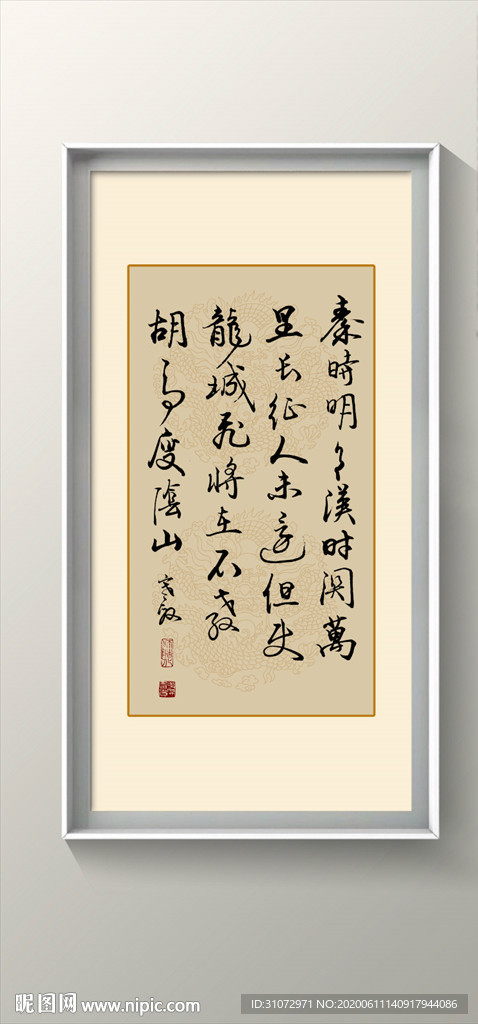 秦時明月漢时関萬
里长征人未還但使
龍城飛將在不教
胡馬度陰山
昵图网 www.nipic.com
ID:31072971 NO:20200611140917944086